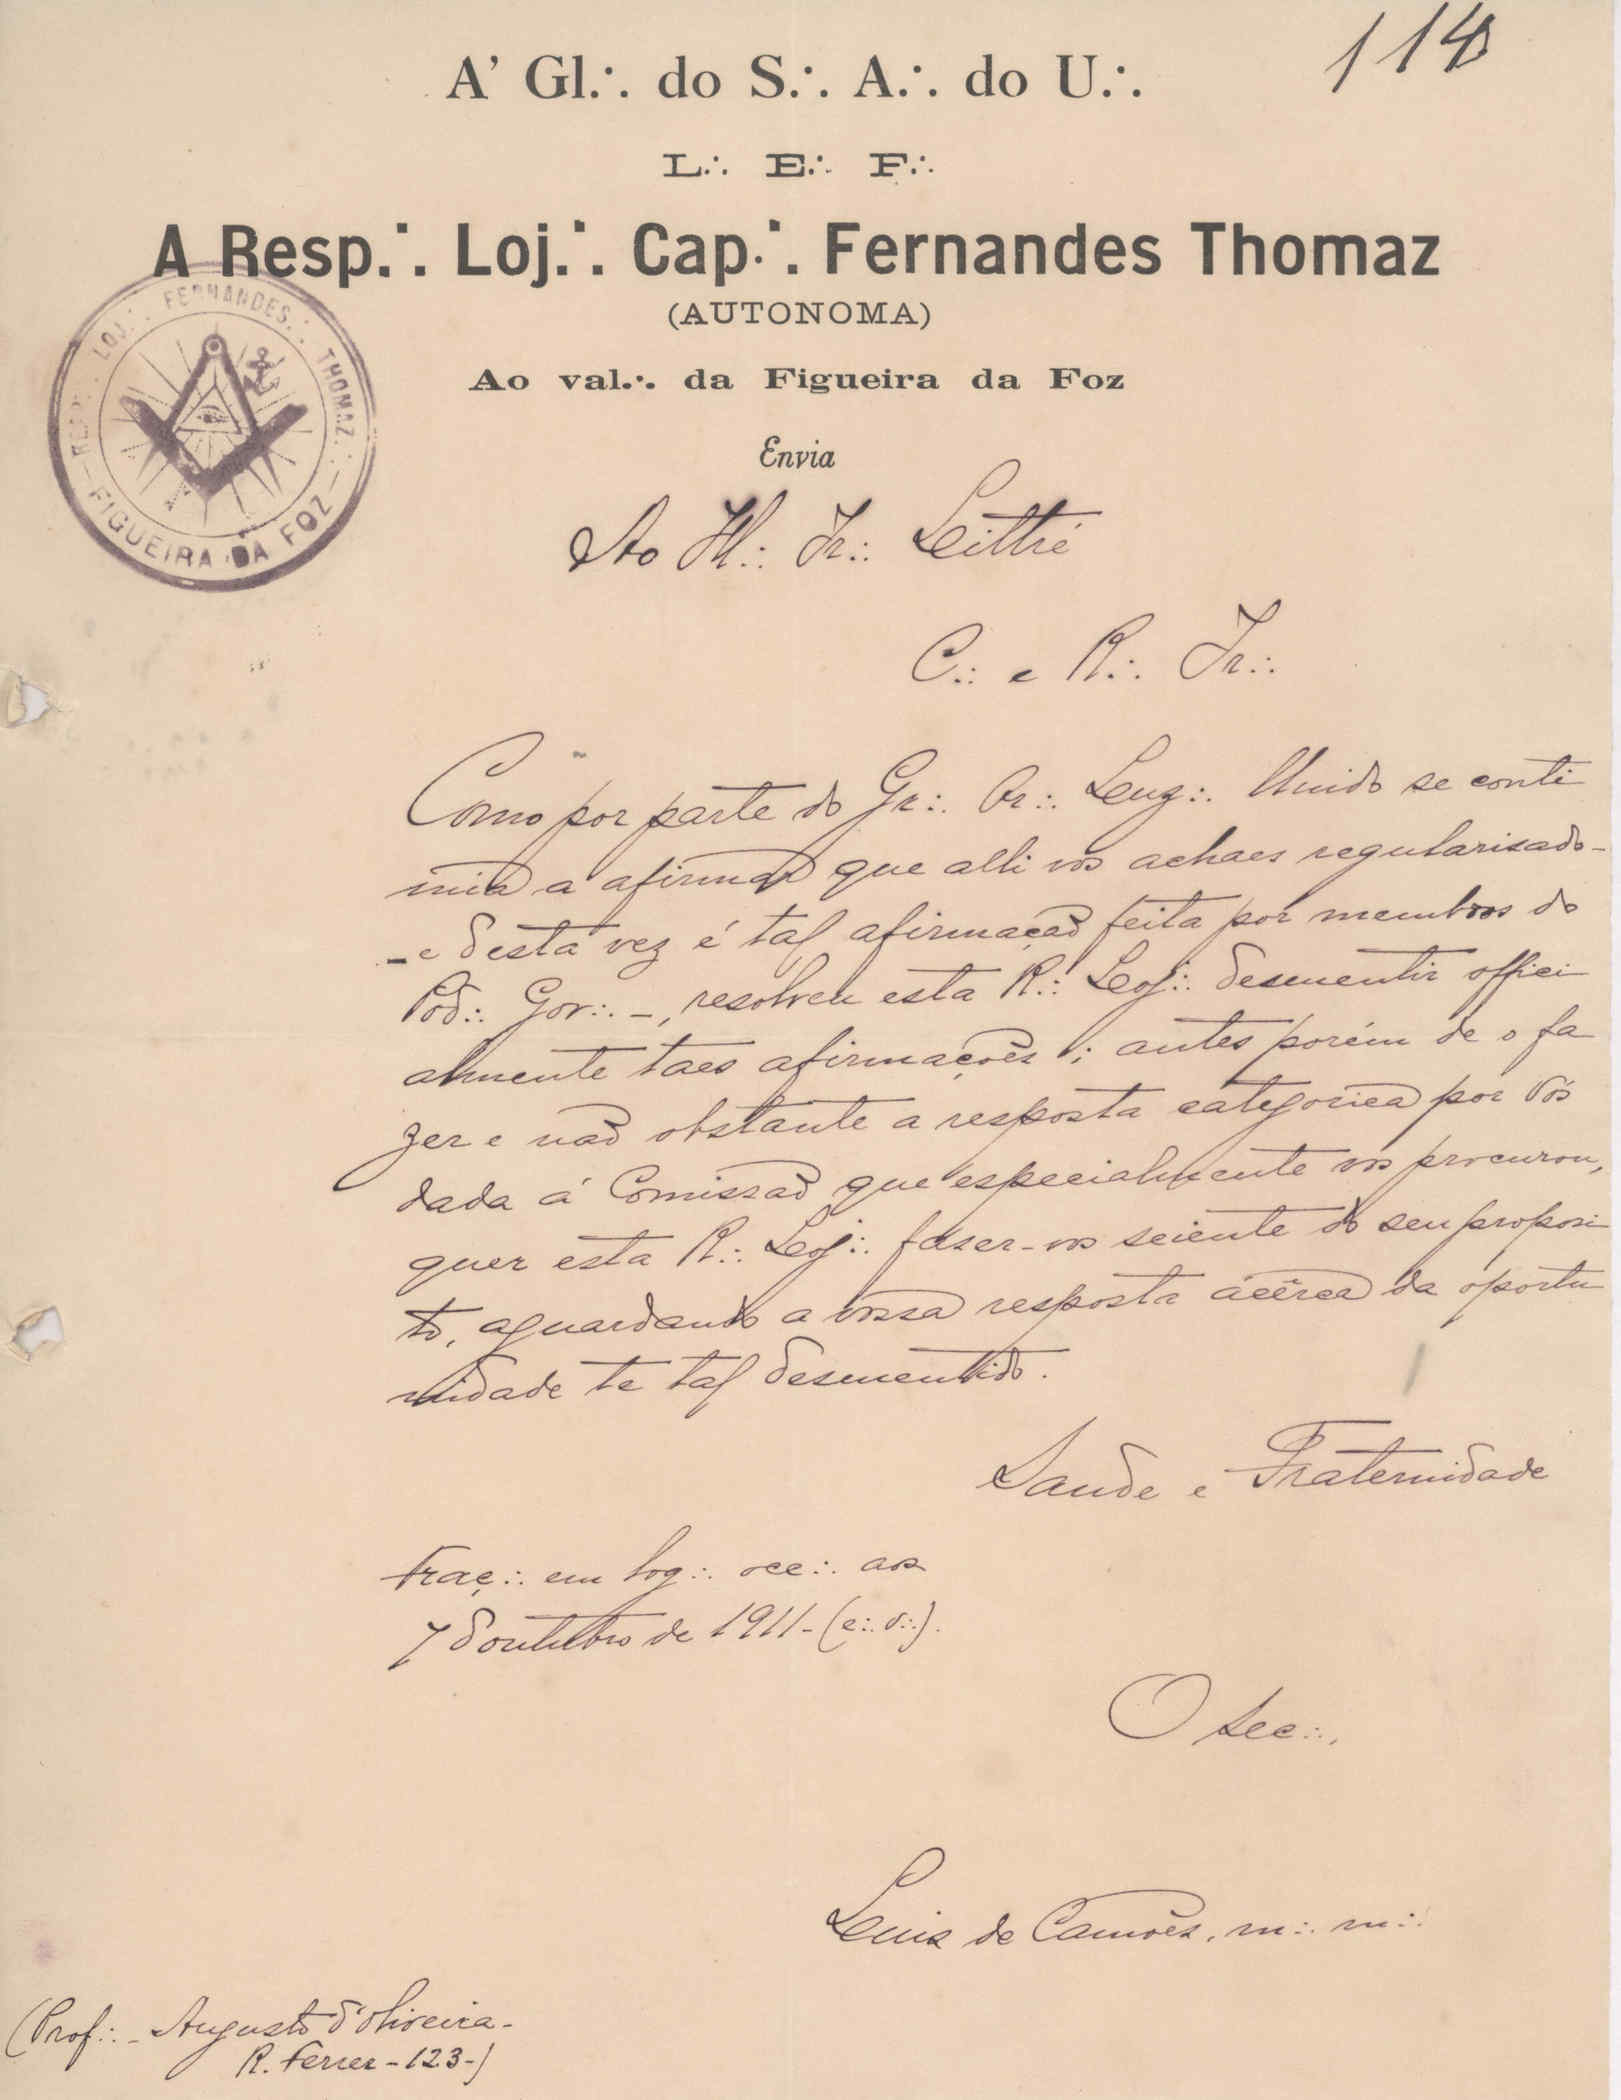 114
A' Gl.∴ do S.∴ A.∴ do U.∴
L.∴ E.∴ F.∴
A Resp.∴ Loj.∴ Cap.∴ Fernandes Thomaz
(AUTONOMA)
Ao val.∴ da Figueira da Foz
RESP.∴ LOJ.∴ FERNANDES.∴ THOMAZ.∴
FIGUEIRA DA FOZ
Envia
Ao Il.∴ Ir.∴ Littré
C.∴ e R.∴ Ir.∴
Como por parte do Gr.∴ Or.∴ Luz.∴ Unido se conti
núa a afirmar que alli vos achaes regularisado-
-e desta vez é tal afirmação feita por membros do
Pod.∴ Gov.∴ -, resolveu esta R.∴ Loj.∴ desmentir offici
almente taes afirmações; antes porém de o fa
zer e não obstante a resposta categorica por vós
dada á Comissão que especialmente vos procurou,
quer esta R.∴ Loj.∴ fazer-vos sciente do seu proposi
to, aguardando a vossa resposta ácêrca da oportu
nidade te tal desmentido.
Saude e Fraternidade
Traç.∴ em log.∴ occ.∴ aos
7 d'outubro de 1911-(e.∴ v.∴).
O Sec.∴,
Luis de Camões, m.∴ m.∴
(Prof.∴ - Augusto d'Oliveira-
R. Ferrer-123-)